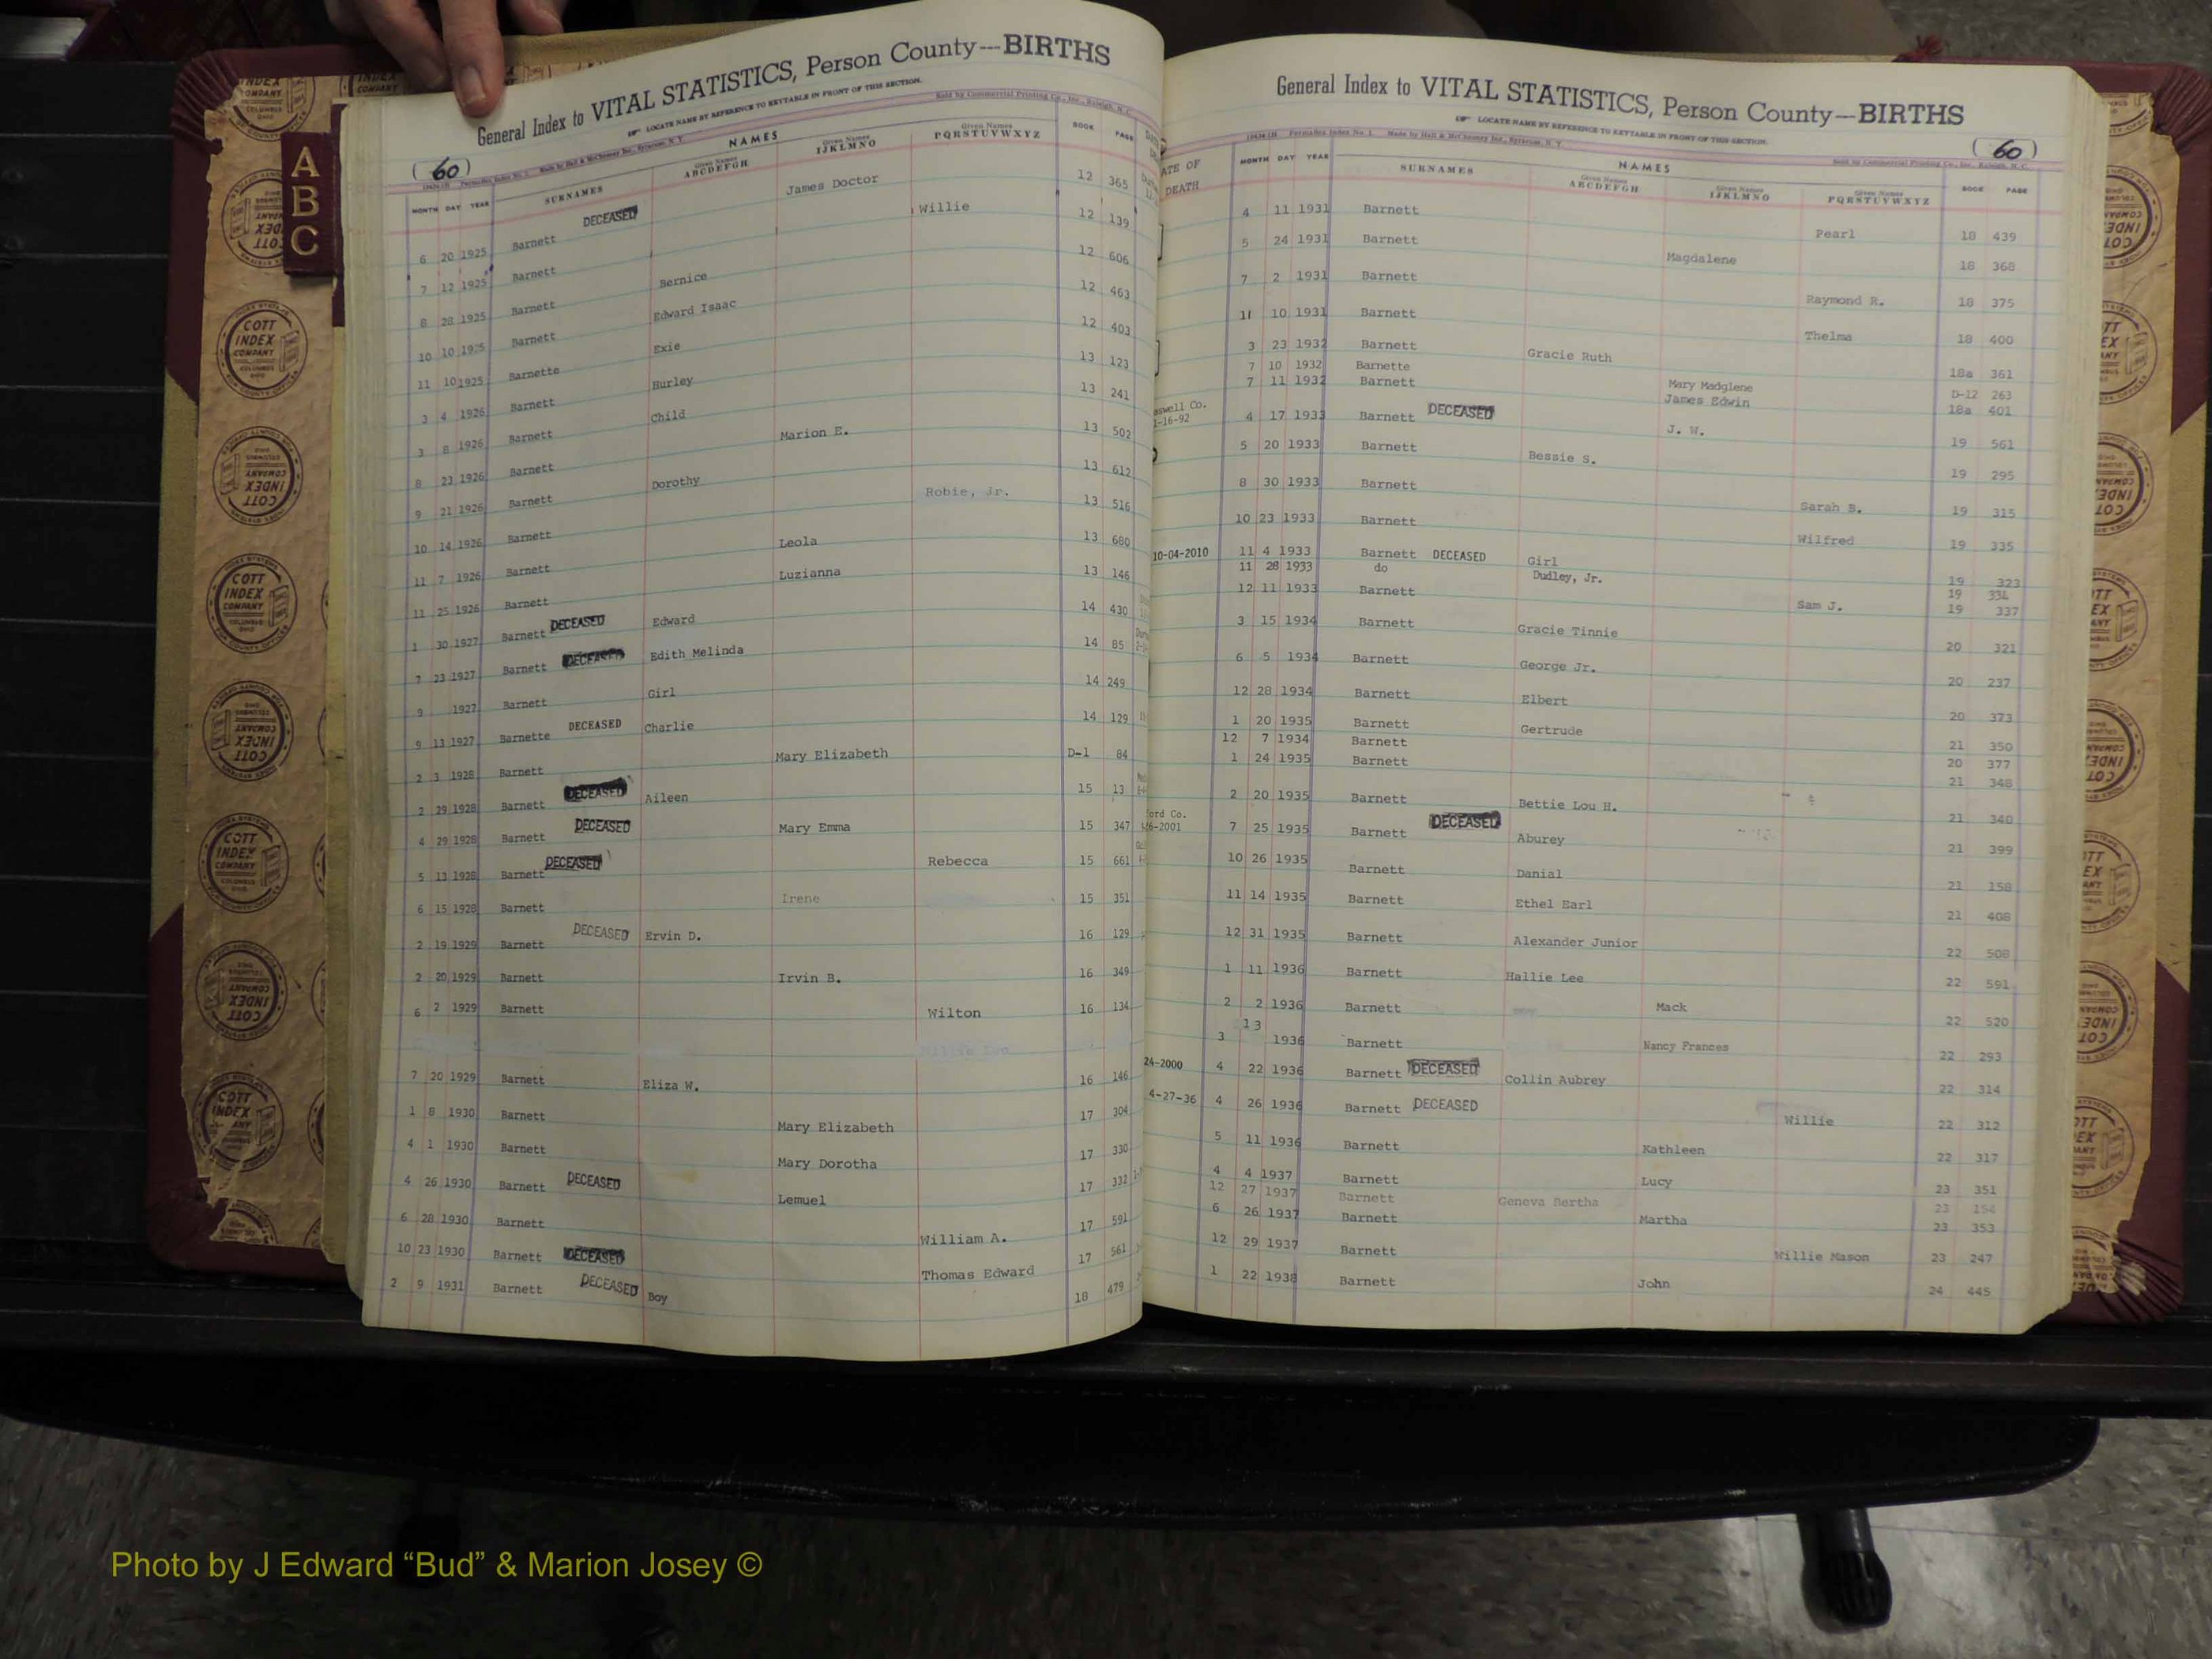 General Index to VITAL STATISTICS, Person County—BIRTHS
LOCATE NAME BY REFERENCE TO KEYTABLE IN FRONT OF THIS SECTION.
(60)
NAMES
MONTH DAY YEAR SURNAMES Given Names ABCDEFGH Given Names IJKLMNO Given Names PQRSTUVWXYZ BOOK PAGE
6 20 1925 Barnett DECEASED James Doctor 12 365
7 12 1925 Barnett Willie 12 139
8 28 1925 Barnett Bernice 12 606
10 10 1925 Barnett Edward Isaac 12 463
11 10 1925 Barnette Exie 12 403
3 4 1926 Barnett Hurley 13 123
3 8 1926 Barnett Child 13 241
8 23 1926 Barnett Marion E. 13 502
9 21 1926 Barnett Dorothy 13 612
10 14 1926 Barnett Robie, Jr. 13 516
11 7 1926 Barnett Leola 13 680
11 25 1926 Barnett Luzianna 13 146
1 30 1927 Barnett DECEASED Edward 14 430
7 23 1927 Barnett DECEASED Edith Melinda 14 85
9 1927 Barnett Girl 14 249
9 13 1927 Barnette DECEASED Charlie 14 129
2 3 1928 Barnett Mary Elizabeth D-1 84
2 29 1928 Barnett DECEASED Aileen 15 13
4 29 1928 Barnett DECEASED Mary Emma 15 347
5 13 1928 Barnett DECEASED Rebecca 15 661
6 15 1928 Barnett Irene 15 351
2 19 1929 Barnett DECEASED Ervin D. 16 129
2 20 1929 Barnett Irvin B. 16 349
6 2 1929 Barnett Wilton 16 134
7 20 1929 Barnett Eliza W. 16 146
1 8 1930 Barnett Mary Elizabeth 17 304
4 1 1930 Barnett Mary Dorotha 17 330
4 26 1930 Barnett DECEASED Lemuel 17 332
6 28 1930 Barnett William A. 17 591
10 23 1930 Barnett DECEASED Thomas Edward 17 561
2 9 1931 Barnett DECEASED Boy 18 479
General Index to VITAL STATISTICS, Person County—BIRTHS
LOCATE NAME BY REFERENCE TO KEYTABLE IN FRONT OF THIS SECTION.
(60)
NAMES
ATE OF DEATH MONTH DAY YEAR SURNAMES Given Names ABCDEFGH Given Names IJKLMNO Given Names PQRSTUVWXYZ BOOK PAGE
4 11 1931 Barnett Pearl 18 439
5 24 1931 Barnett Magdalene 18 368
7 2 1931 Barnett Raymond R. 18 375
11 10 1931 Barnett Thelma 18 400
3 23 1932 Barnett Gracie Ruth 18a 361
7 10 1932 Barnette Mary Madglene D-12 263
7 11 1932 Barnett James Edwin 18a 401
aswell Co. 1-16-92 4 17 1933 Barnett DECEASED J. W. 19 561
5 20 1933 Barnett Bessie S. 19 295
8 30 1933 Barnett Sarah B. 19 315
10 23 1933 Barnett Wilfred 19 335
10-04-2010 11 4 1933 Barnett DECEASED Girl 19 323
11 28 1933 do Dudley, Jr. 19 334
12 11 1933 Barnett Sam J. 19 337
3 15 1934 Barnett Gracie Tinnie 20 321
6 5 1934 Barnett George Jr. 20 237
12 28 1934 Barnett Elbert 20 373
1 20 1935 Barnett Gertrude 21 350
12 7 1934 Barnett 20 377
1 24 1935 Barnett 21 348
2 20 1935 Barnett Bettie Lou H. 21 340
ford Co. 6-2001 7 25 1935 Barnett DECEASED Aburey 21 399
10 26 1935 Barnett Danial 21 158
11 14 1935 Barnett Ethel Earl 21 408
12 31 1935 Barnett Alexander Junior 22 508
1 11 1936 Barnett Hallie Lee 22 591
2 2 1936 Barnett Mack 22 520
3 13 1936 Barnett Nancy Frances 22 293
24-2000 4 22 1936 Barnett DECEASED Collin Aubrey 22 314
4-27-36 4 26 1936 Barnett DECEASED Willie 22 312
5 11 1936 Barnett Kathleen 22 317
4 4 1937 Barnett Lucy 23 351
12 27 1937 Barnett Geneva Bertha 23 154
6 26 1937 Barnett Martha 23 353
12 29 1937 Barnett Willie Mason 23 247
1 22 1938 Barnett John 24 445
A
B
C
COTT INDEX COMPANY COLUMBUS OHIO
Photo by J Edward “Bud” & Marion Josey ©